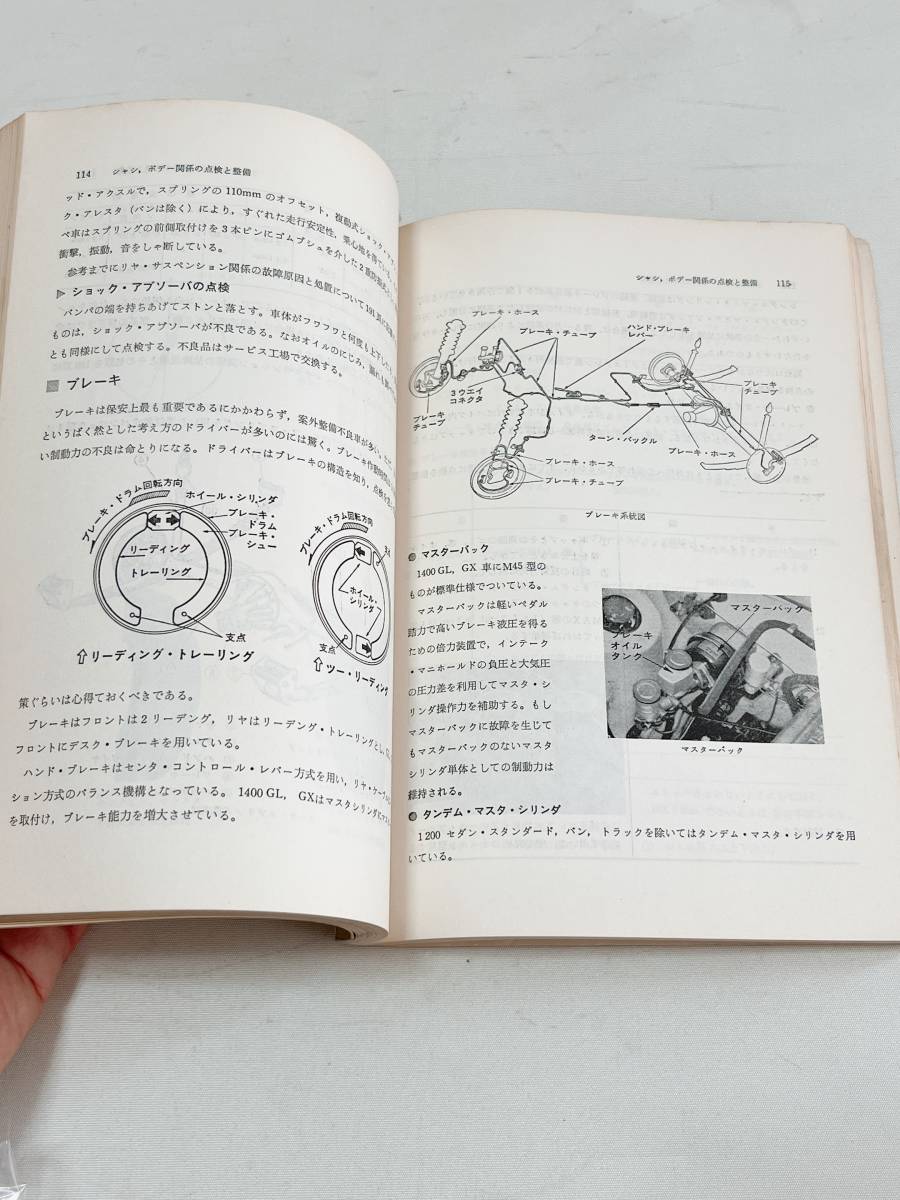 114 シャシ，ボデー関係の点検と整備
ッド・アクスルで，スプリングの110mm のオフセット，複動式ショック・アブ
ク・アレスタ（バンは除く）により，すぐれた走行安定性，乗心地を得ている。
ベ車はスプリングの前側取付けを3本ピンにゴムブシュを介した2重防振式
衝撃，振動，音をしゃ断している。
参考までにリヤ・サスペンション関係の故障原因と処置について191頁
▷ ショック・アブソーバの点検
バンパの端を持ちあげてストンと落とす。車体がフワフワと何度も上下
ものは，ショック・アブソーバが不良である。なおオイルのにじみ，漏れも
とも同様にして点検する。不良品はサービス工場で交換する。
ブレーキ
ブレーキは保安上最も重要であるにかかわらず，案外整備不良車が多い。
というばく然とした考え方のドライバーが多いのには驚く。ブレーキ作動
い制動力の不良は命とりになる。ドライバーはブレーキの構造を知り，点検
ブレーキ・ドラム回転方向
ホイール・シリンダ
ブレーキ・
ドラム
ブレーキ・
シュー
リーディング
トレーリング
支点
⇧リーディング・トレーリング
ブレーキ・ドラム回転方向
支点
ホイール・
シリンダ
支点
⇧ツー・リーディング
策ぐらいは心得ておくべきである。
ブレーキはフロントは2リーディング，リヤはリーディング・トレーリングとし，
フロントにデスク・ブレーキを用いている。
ハンド・ブレーキはセンタ・コントロール・レバー方式を用い，リヤ・ケーブル
ション方式のバランス機構となっている。1400 GL，GXはマスタシリンダにマス
を取付け，ブレーキ能力を増大させている。
シャシ，ボデー関係の点検と整備 115
ブレーキ・ホース
ブレーキ・チューブ
ハンド・ブレーキ
レバー
3ウエイ
コネクタ
ブレーキ
チューブ
ブレーキ
チューブ
ターン・バックル
ブレーキ・ホース
ブレーキ・ホース
ブレーキ・チューブ
ブレーキ系統図
● マスターバック
1400 GL，GX 車にM45 型の
ものが標準仕様でついている。
マスターバックは軽いペダル
踏力で高いブレーキ液圧を得る
ための倍力装置で，インテーク
・マニホールドの負圧と大気圧
の圧力差を利用してマスタ・シ
リンダ操作力を補助する。もし
マスターバックに故障を生じて
もマスターバックのないマスタ
シリンダ単体としての制動力は
維持される。
マスターバック
ブレーキ
オイル
タンク
マスターバック
● タンデム・マスタ・シリンダ
1200 セダン・スタンダード，バン，トラックを除いてはタンデム・マスタ・シリンダを用
いている。